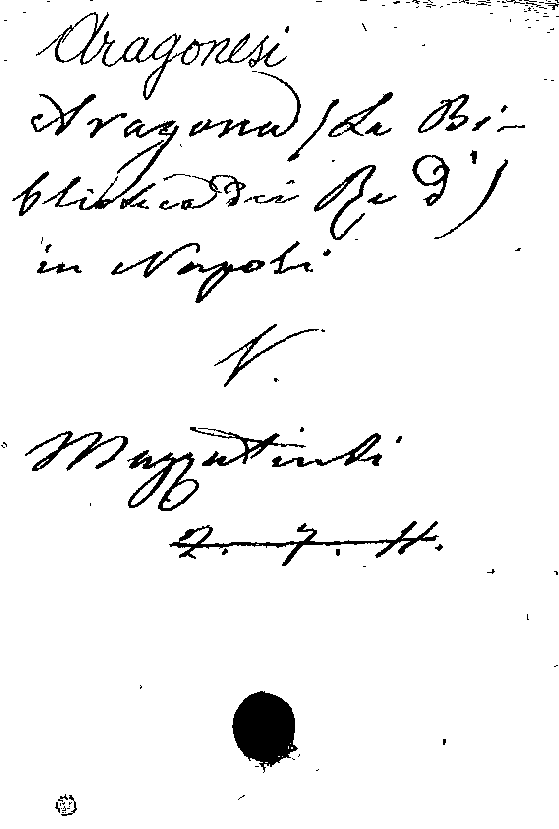 Aragonesi
Aragona (La Bi-
blioteca dei Re d')
in Napoli
V.
Mazzatinti
2. 7. H.